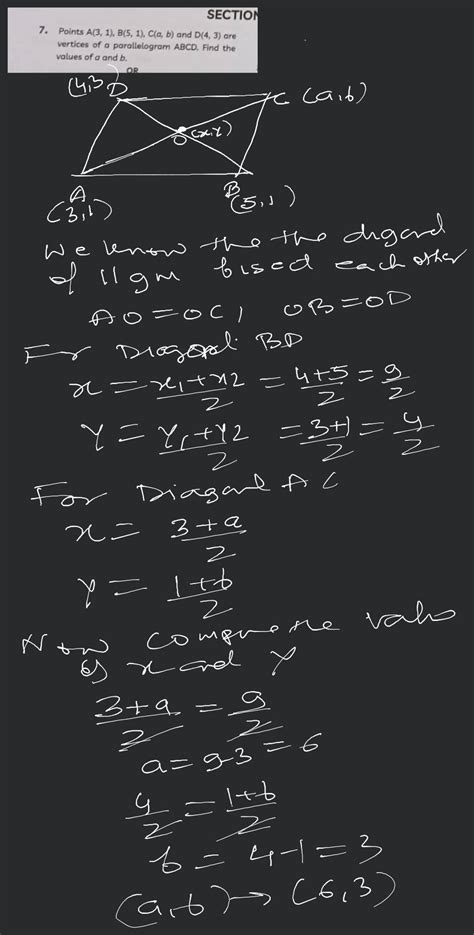 SECTION
7. Points A(3, 1), B(5, 1), C(a, b) and D(4, 3) are
vertices of a parallelogram ABCD. Find the
values of a and b.
OR
(4,3) D
C (a,b)
O (x,y)
A
(3,1)
B
(5,1)
We know the the digonal
of ||gm bised each other
AO = OC, OB = OD
For Diagonal BD
x = x1+x2/2 = 4+5/2 = 9/2
Y = Y1+Y2/2 = 3+1/2 = 4/2
For Diagonal AC
x = 3+a/2
y = 1+b/2
Now compare the value
of x and y
3+a/2 = 9/2
a = 9-3 = 6
4/2 = 1+b/2
b = 4-1 = 3
(a,b) → (6,3)